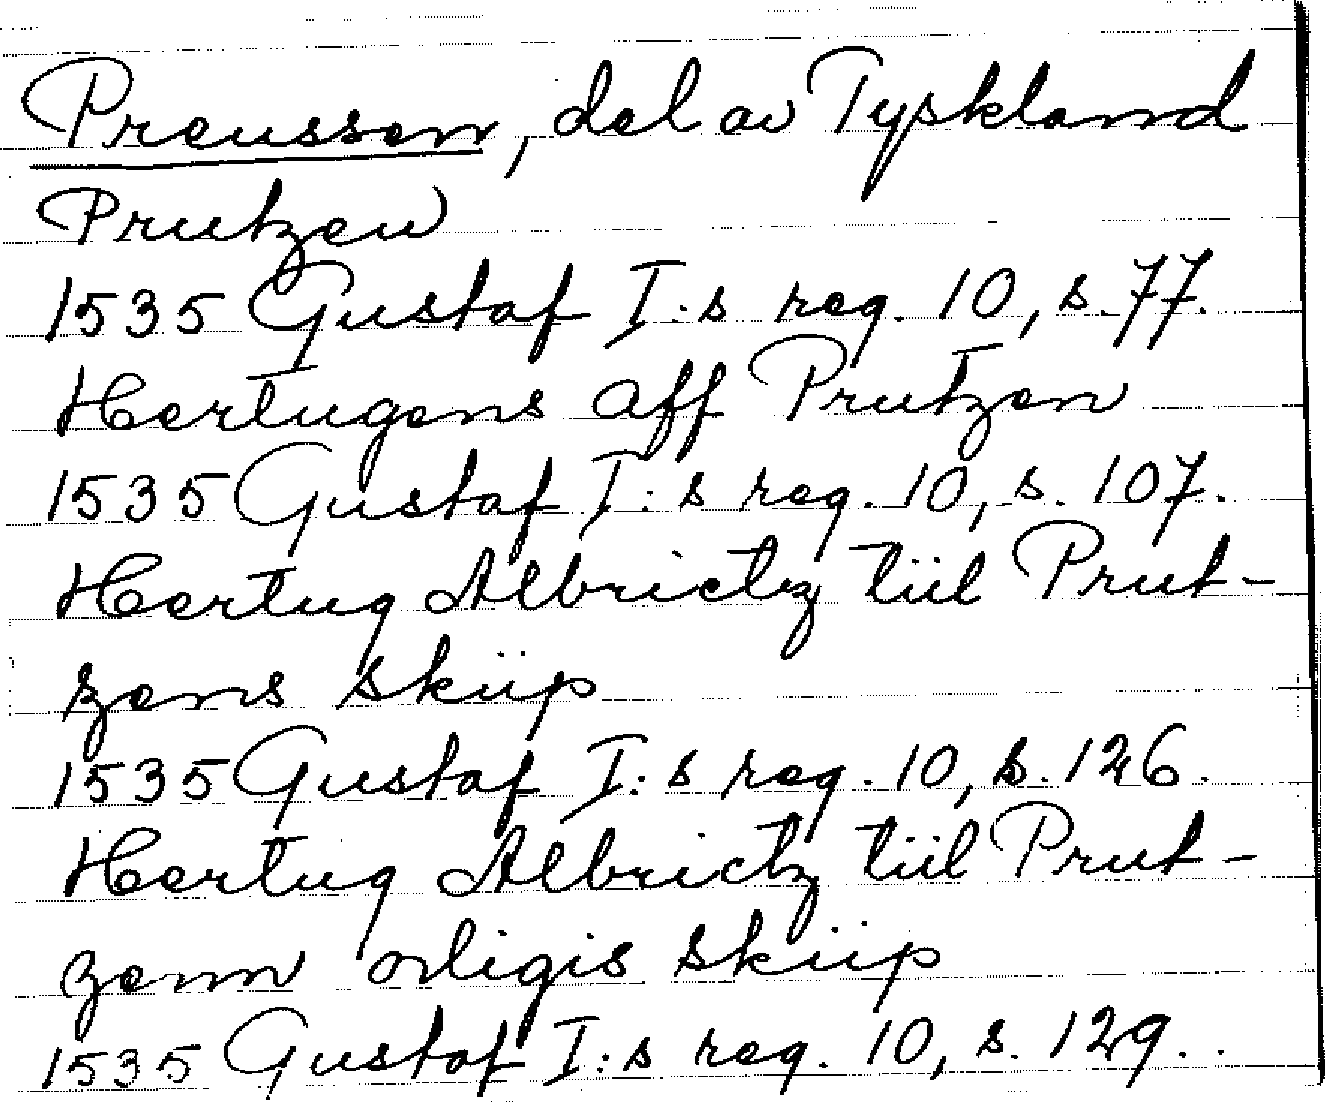 Preussen, del av Tyskland
Prutzen
1535 Gustaf I:s reg. 10, s. 77.
Hertugens aff Prutzen
1535 Gustaf I:s reg. 10, s. 107.
Hertug Albrictz tiil Prut-
zens skiip
1535 Gustaf I:s reg. 10, s. 126.
Hertug Albrictz tiil Prut-
zenn orligis skiip
1535 Gustaf I:s reg. 10, s. 129..